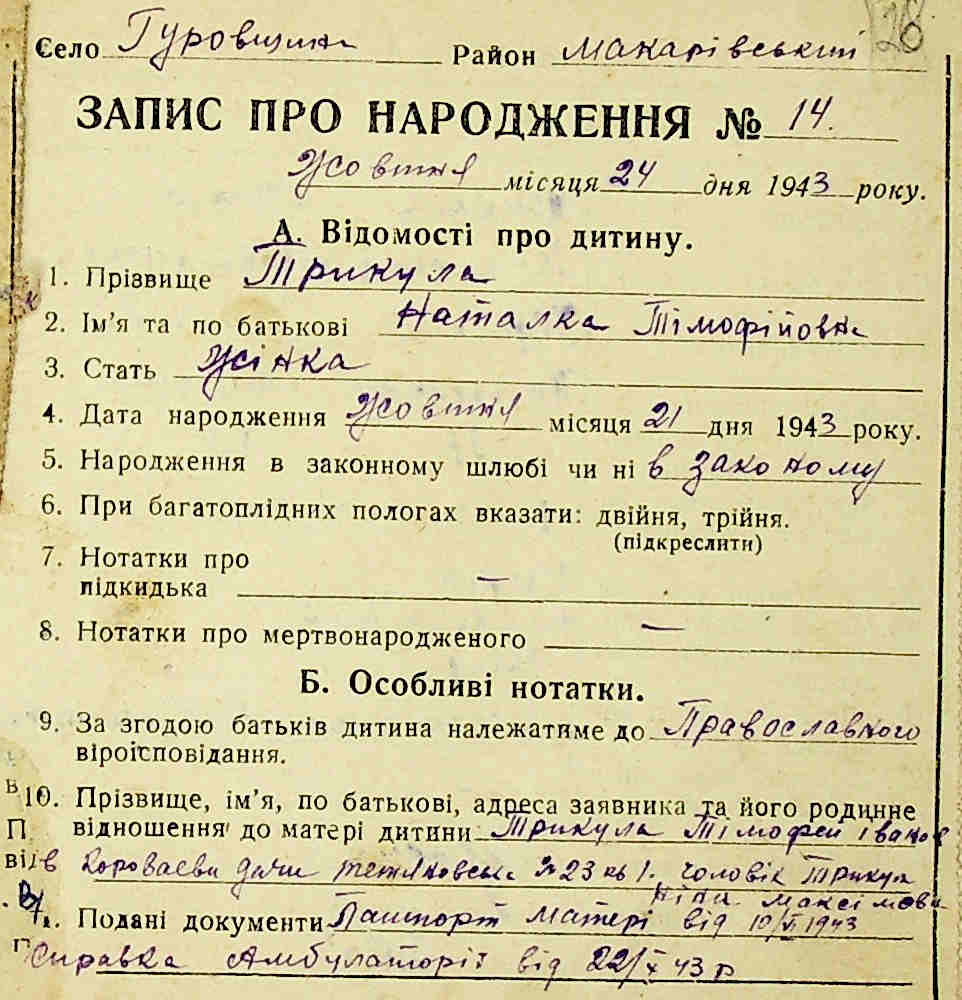 26
Село Гуровщина Район Макарівський
ЗАПИС ПРО НАРОДЖЕННЯ № 14.
Жовтня місяця 24 дня 1943 року.
А. Відомості про дитину.
1. Прізвище Трикула
2. Ім'я та по батькові Наталка Тімофійовна
3. Стать Жінка
4. Дата народження Жовтня місяця 21 дня 1943 року.
5. Народження в законному шлюбі чи ні в законому
6. При багатоплідних пологах вказати: двійня, трійня.
(підкреслити)
7. Нотатки про
підкидька —
8. Нотатки про мертвонародженого —
Б. Особливі нотатки.
9. За згодою батьків дитина належатиме до Православного
віроісповідання.
10. Прізвище, ім'я, по батькові, адреса заявника та його родинне
відношення до матері дитини Трикула Тімофей Іванов
в Короваеви дачи № 23 кв 1. чоловік Трикул
Ніни Максімовн
Подані документи Паспорт матері від 10/VI 1943
Справка Амбулаторії від 22/X 43 р